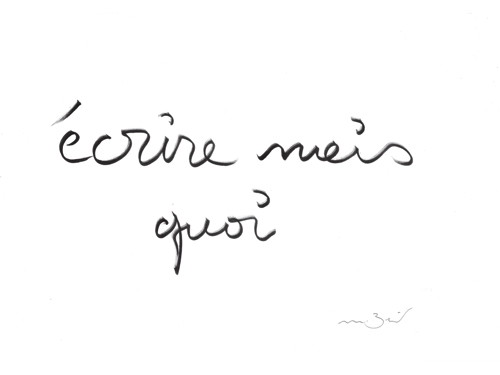 écrire mais
quoi